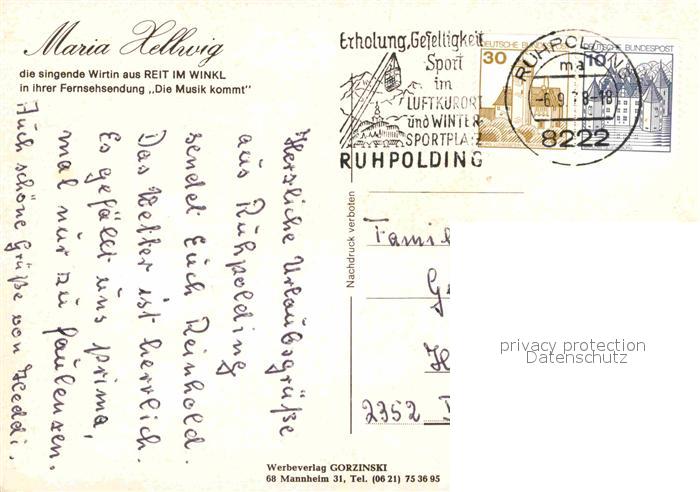 Maria Hellwig
die singende Wirtin aus REIT IM WINKL
in ihrer Fernsehsendung „Die Musik kommt"
Erholung, Geselligkeit
Sport
im
LUFTKURORT
und WINTER-
SPORTPLATZ
RUHPOLDING
30
DEUTSCHE BUNDESPOST
10
DEUTSCHE BUNDESPOST
RUHPOLDING
ma
-6.9.78-18
8222
Herzliche Urlaubsgrüße
aus Ruhpolding
sendet Euch Reinhold.
Das Wetter ist herrlich.
Es gefällt uns prima,
mal nur zu faulenzen.
Auch schöne Grüße von Heddi.
Nachdruck verboten
Famil
G
H
2352
privacy protection
Datenschutz
Werbeverlag GORZINSKI
68 Mannheim 31, Tel. (06 21) 75 36 95